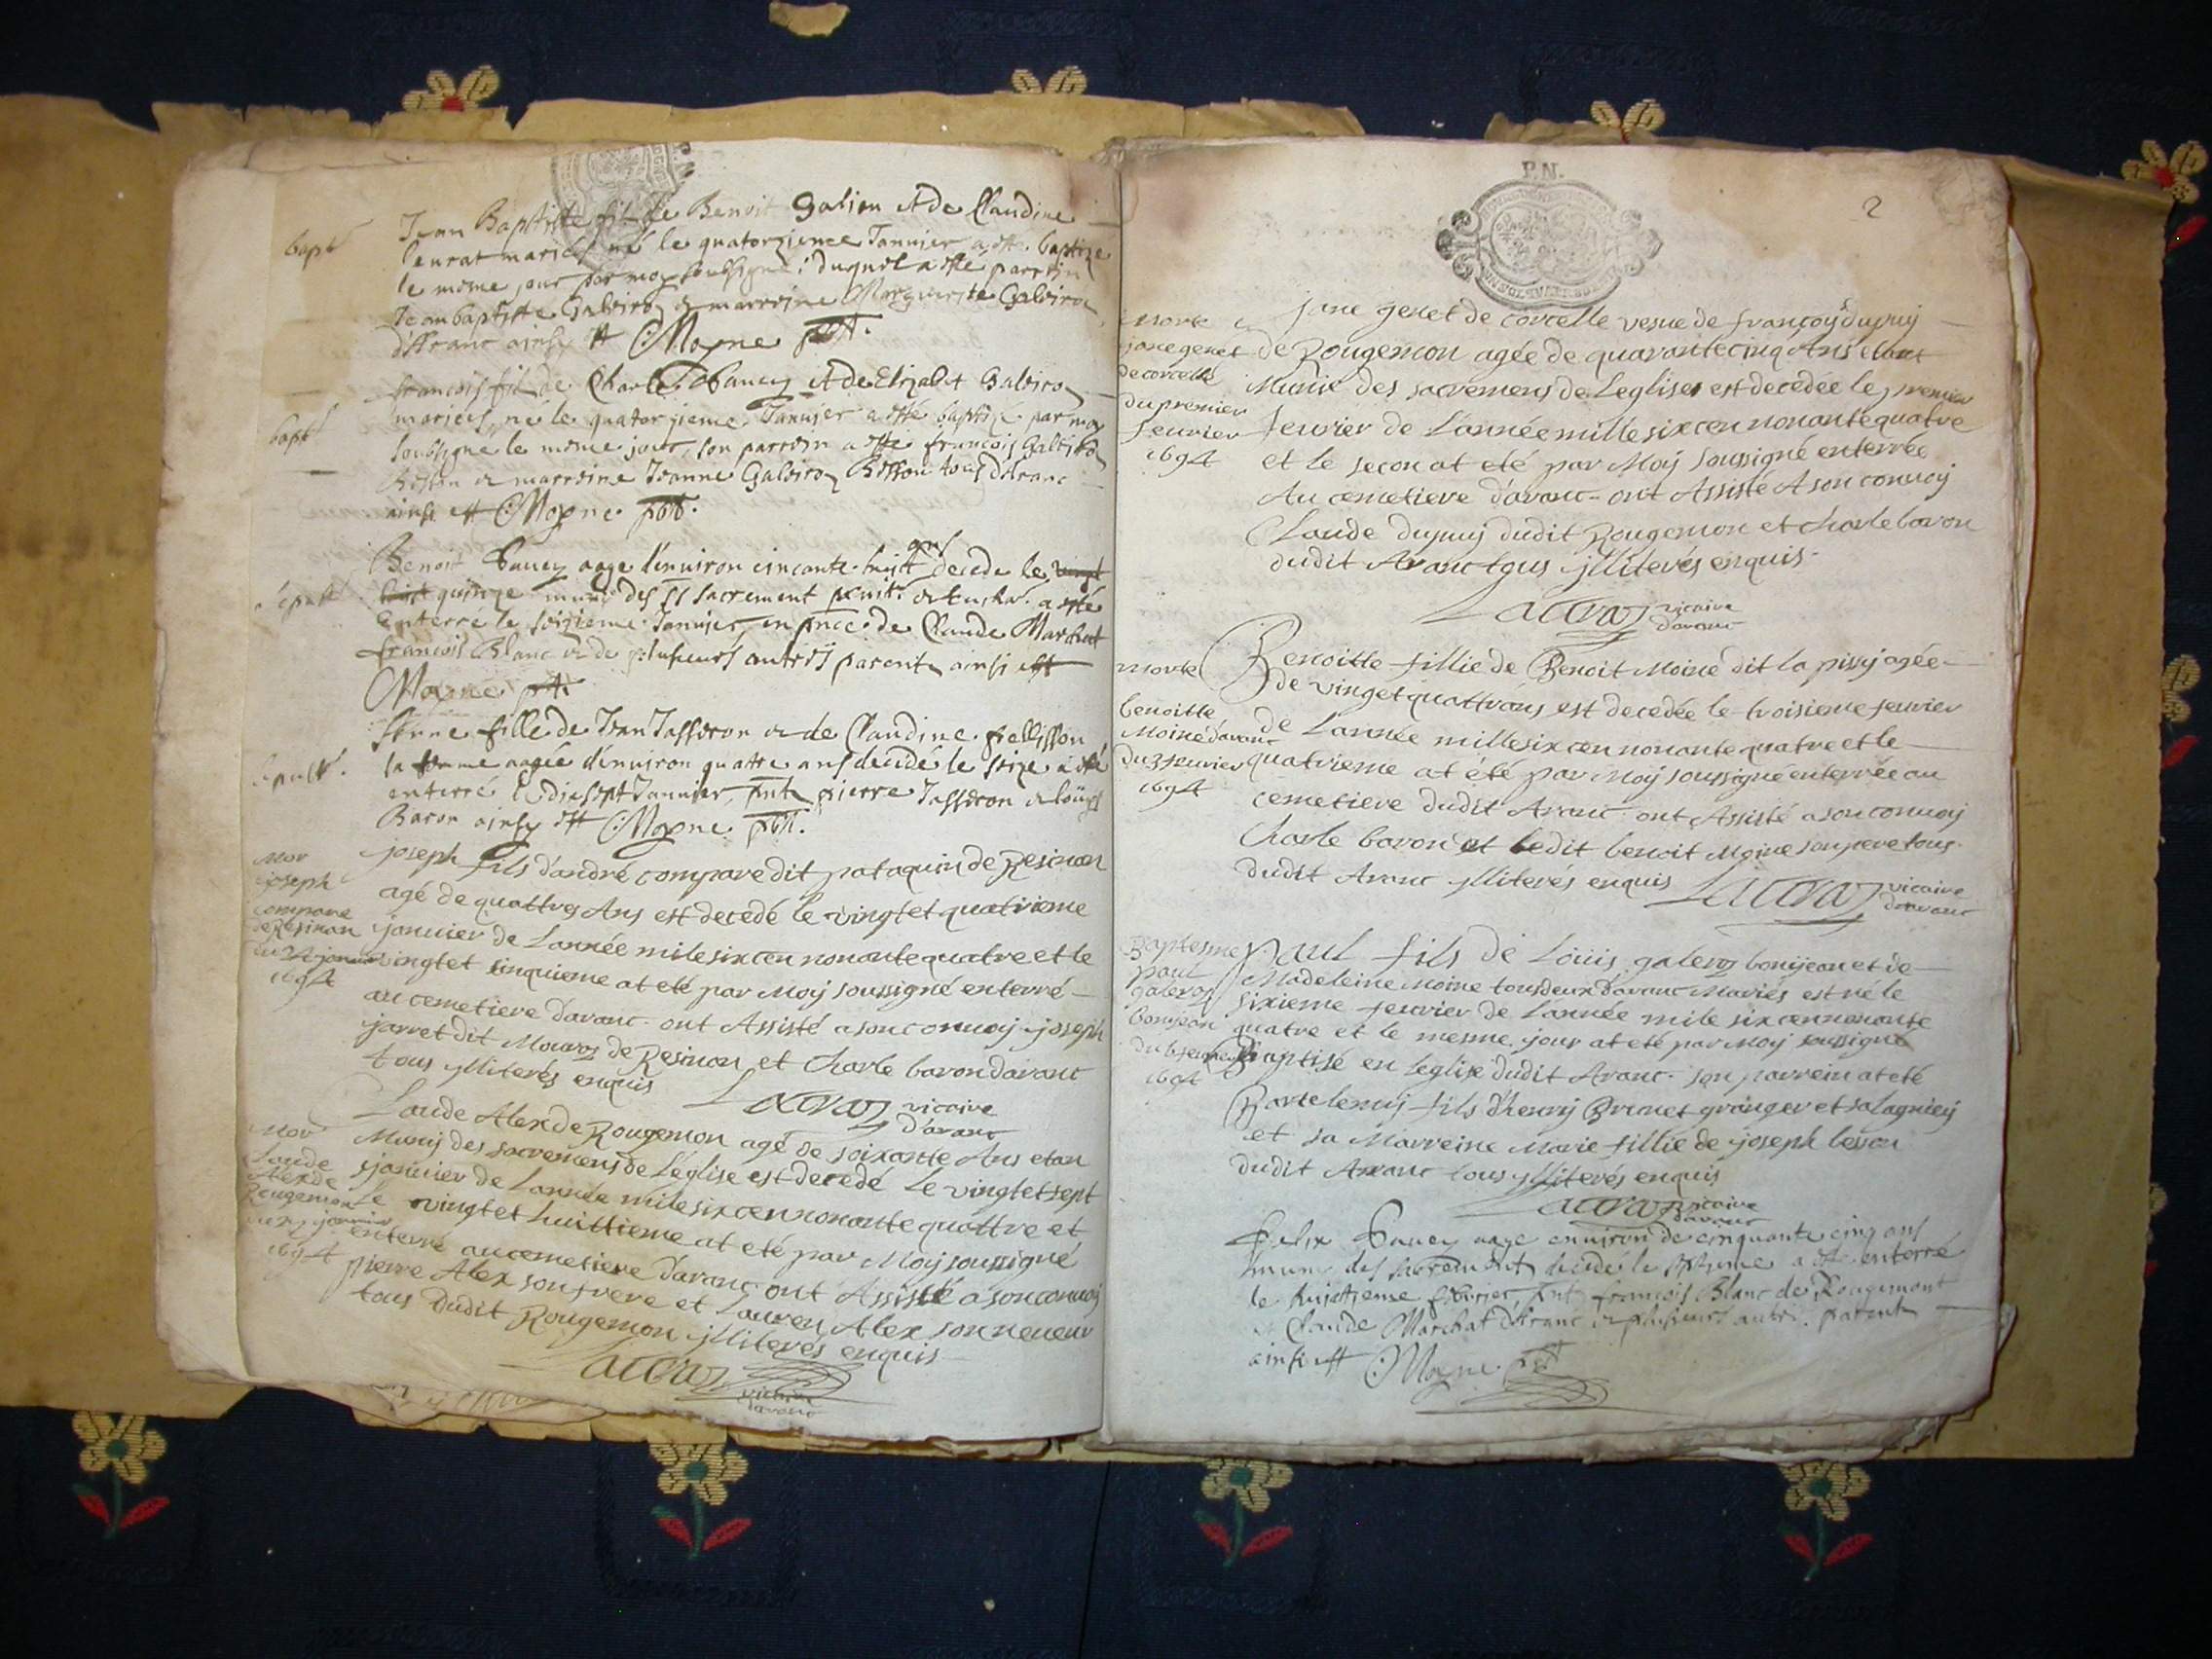 bapt
Jean Baptiste fils de Benoit Galien et de Claudine
mariés né le quatorzieme Januier a esté baptize
le mesme jour par moy soubsigné; duquel a esté parrein
Jeanbaptiste Galoiroz & marreine Marguerite Galoiroz
d'Aranc ainsy est Mogne pbr.
bapt
francois fils de Charle et de Elizabet Galoiroz
mariees, né le quatorzieme Januier a esté baptizé par moy
soubsigné le mesme jour, son parrein a esté francois Galoiroz
& marreine Jeanne Galoiroz tous d'Aranc
ainsi est Mogne pbr.
sepult
ans
Benoit aage d'enuiron cincante huict decede le vingt
huit quinze muny des SS sacrement penit. & euchar. a esté
enterré le seizieme Januier, en pnce de Claude Marchat
francois Blanc & de plusieurs autres parents ainsi est
Mogne pbr.
sepult.
fille de Jean Tasseron & de Claudine
la femme aagée d'enuiron quattre ans decedé le seize a esté
enterré le dixsept Januier, pnt pierre Tasseron & loüys
Baron ainsy est Mogne pbr.
Mor
joseph
compare
de Resinan
du 24 januier
1694
joseph fils d'andré compare dit pataquin de Resinan
agé de quattres Ans est decedé le vingtet quatrieme
januier de L'année mile six cen nonante quatre et le
vingtet sinquieme at eté par Moÿ soussigné enterré
au cemetiere d'avanc. ont Assisté a son conuoÿ joseph
jarret dit Mouroz de Resinan et Charle baron d'avanc
tous ylliterés enquis
Lacroz vicaire
d'avanc
Mor
Laude
Alex de
Rougemon
du 27 januier
1694
Laude Alex de Rougemon agé de soixante Ans etan
Muny des sacremens de L'église est decedé Le vingtet sept
januier de L'année mile six cen nonante quattre et
Le vingtet huittieme at eté par Moÿ soussigné
enterré au cemetiere d'avanc. ont Assisté a son conuoÿ
pierre Alex son frere et Lauren Alex son neueur
tous dudit Rougemon ylliterés enquis
Lacroz
vicaire
d'avanc
P.N.
2
Morte
jane genet
de corcelle
du premier
feurier
1694
jane genet de corcelle veuue de françoys dupuÿ
de Rougemon agée de quarante cinq Ans etant
Munie des sacremens de Leglise est decedée le premier
feurier de L'année mille six cen nonante quatre
et le secon at eté par Moÿ soussigné enterrée
Au cemetiere d'avanc. ont Assisté A son conuoÿ
Claude dupuÿ dudit Rougemon et Charle baron
dudit Avanc tous ylliterés enquis
Lacroz vicaire
d'avanc
Morte
benoitte
Moine d'avanc
du 3 feurier
1694
Benoitte fillie de Benoit Moine dit la pissÿ agée
de vinget quattr'ans est decedée le troisieme feurier
de L'année mille six cen nonante quatre et le
quatrieme at été par Moÿ soussigné enterrée au
cemetiere dudit Avanc. ont Assisté a son conuoÿ
Charle baron et ledit benoit Moine son pere tous
dudit Avanc ylliteres enquis Lacroz vicaire
d'avanc
Baptesme
paul
galeroz
bonjean
du 6 feurier
1694
Paul fils de Loüis galeroz bonjean et de
Madeleine Moine tous deux d'avanc Mariés est né le
sixieme feurier de L'année mile six cen nonante
quatre et le mesme jour at eté par Moÿ soussigné
Baptisé en Leglise dudit Avanc. son parrein at eté
Bartelemÿ fils d'henrÿ Brunet granger et
et sa Marreine Marie fillie de joseph
dudit Avanc tous ylliterés enquis
Lacroz vicaire
d'avanc
Felix aage enuiron de cinquante cinq ans
muni des sacrements decedé le septieme a esté enterré
le huictieme feburier pnt francois Blanc de Rougemont
& Claude Marchat d'Aranc & plusieurs autres parents
ainsi est Mogne pbr